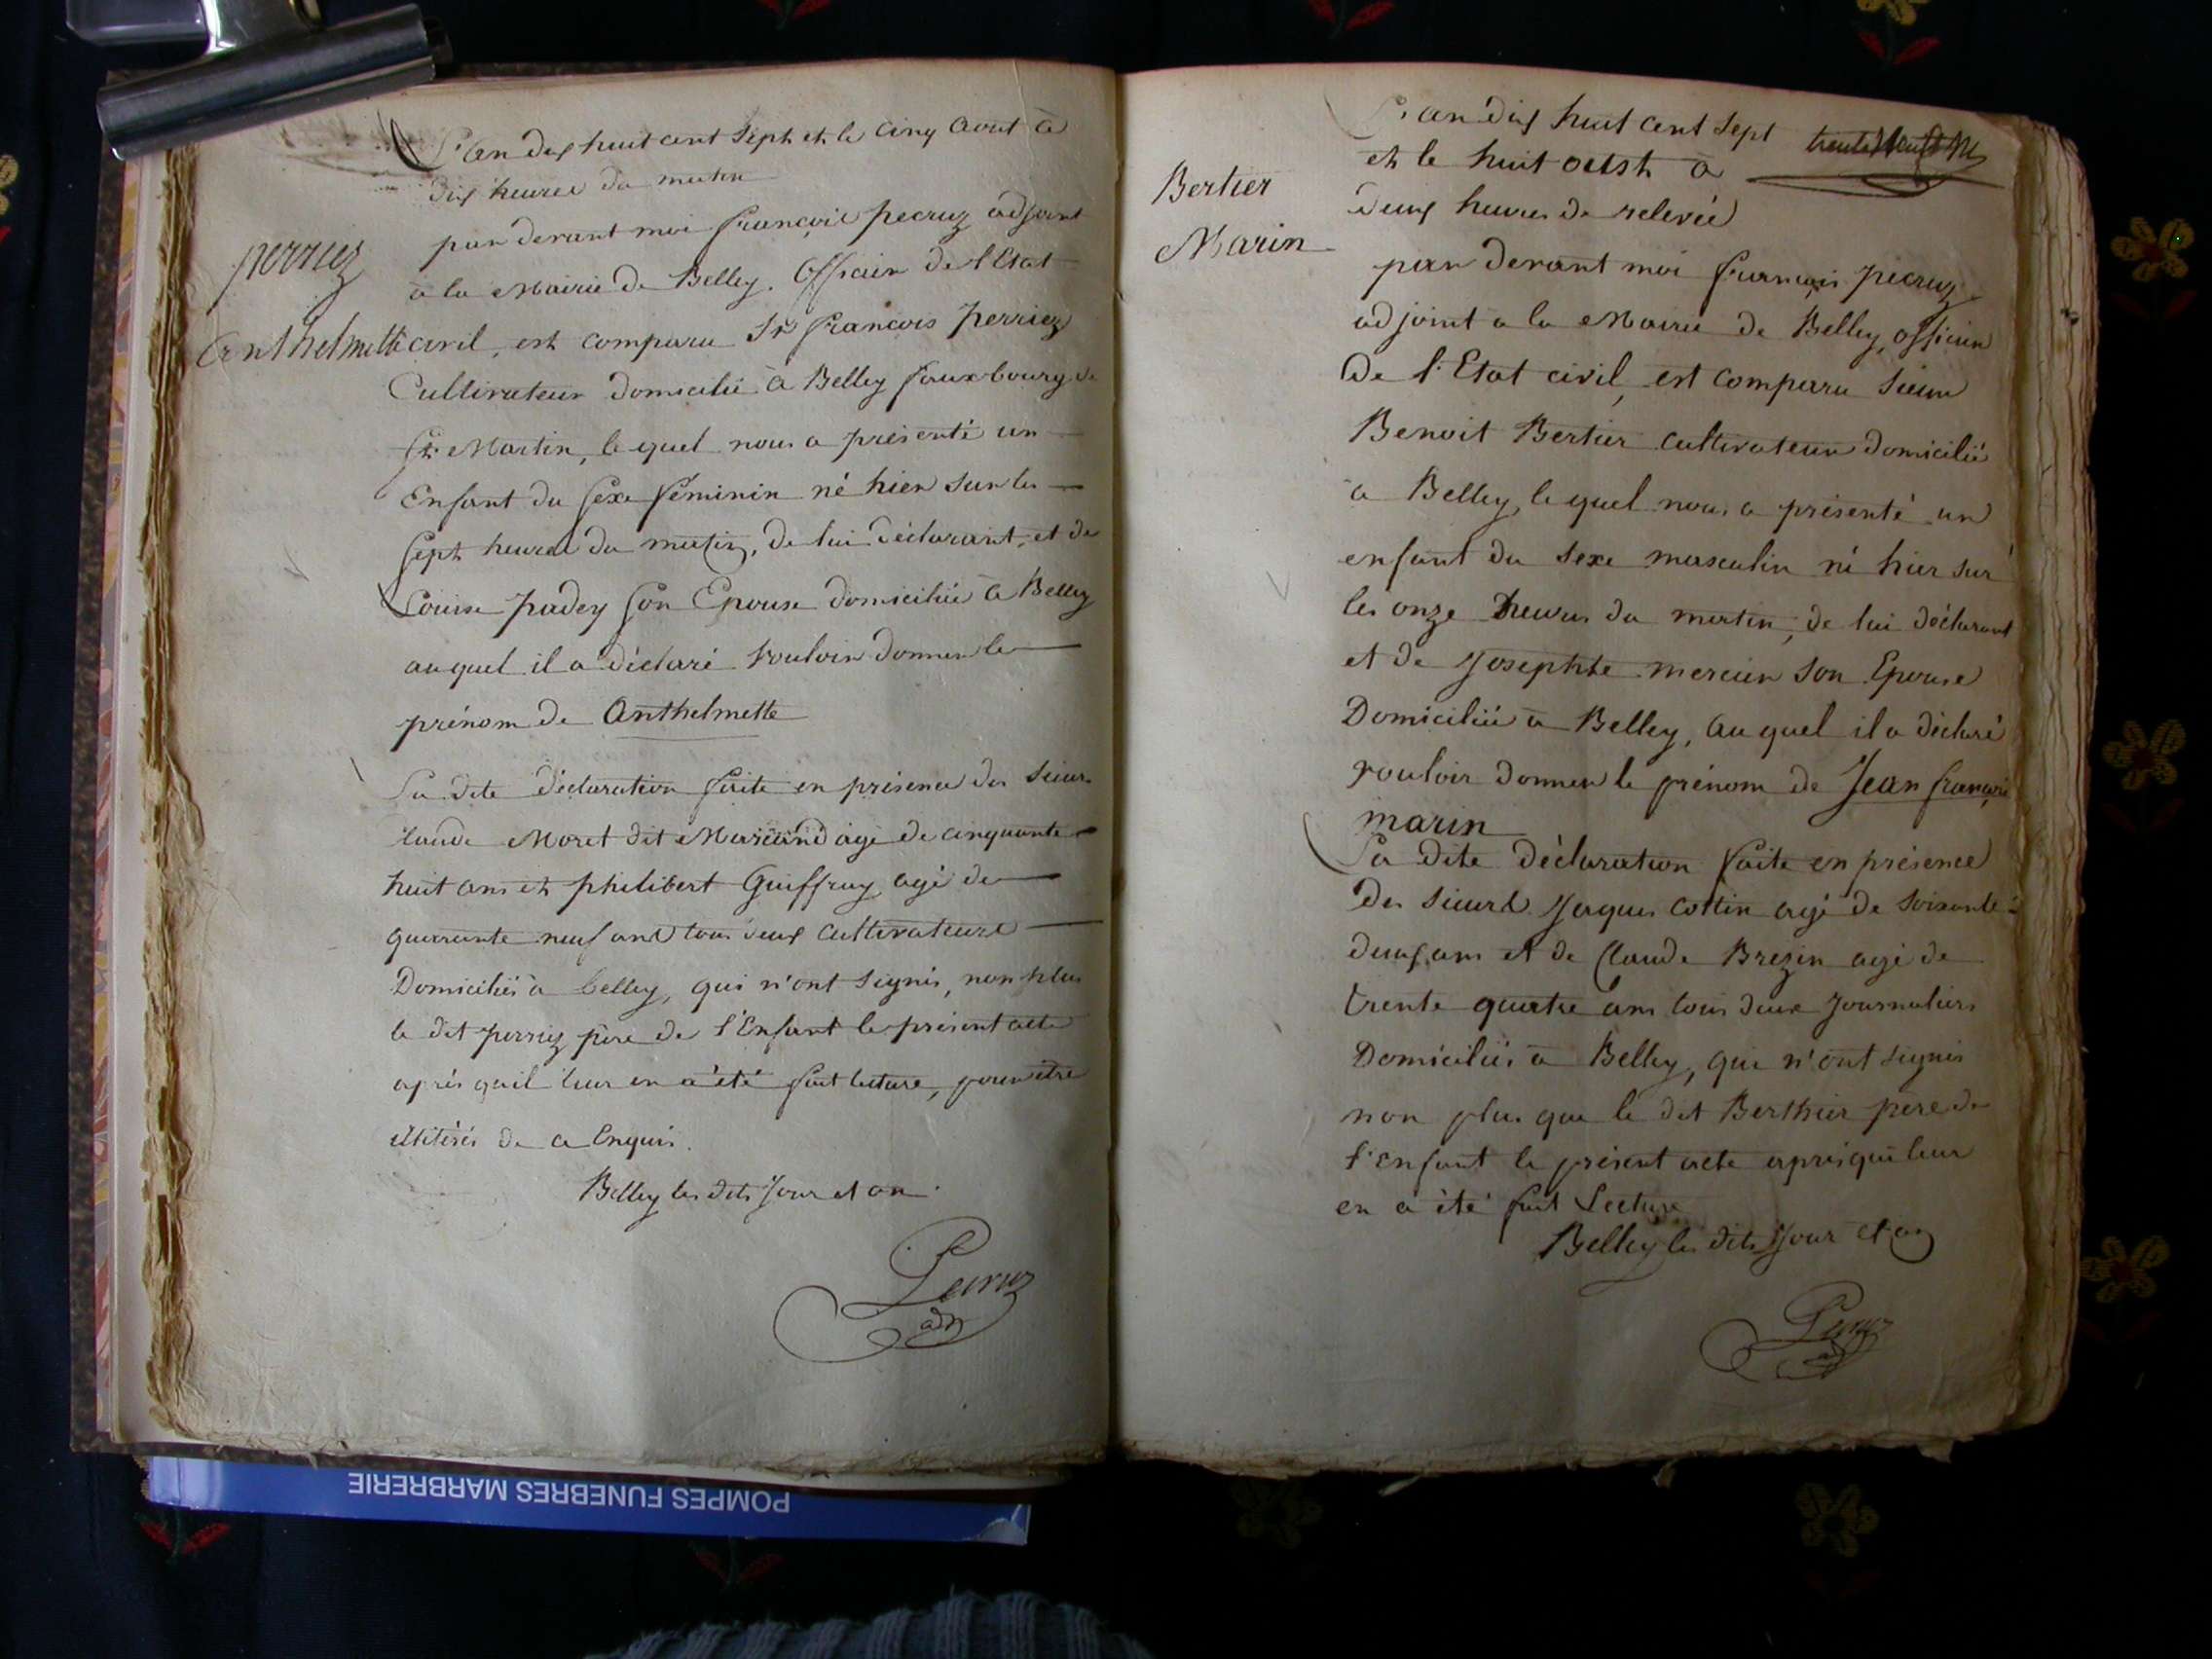 L'an dix huit cent sept et le cinq Aout à
dix heures du matin
par devant moi françois pecruz adjoint
à la Mairie de Belley. Officier de l'Etat
perriez
Anthelmette
civil, est comparu Sr françois perriez
Cultivateur domicilié à Belley fauxbourg de
St Martin, le quel nous a présenté un
Enfant du sexe féminin né hier sur les
sept heures du matin, de lui déclarant, et de
Louise padey son Epouse domiciliée à Belley
auquel il a déclaré vouloir donner le
prénom de Anthelmette
La dite déclaration faite en présence des sieurs
Claude Moret dit Marcand agé de cinquante
huit ans et philibert Guiffray agé de
quarante neuf ans tous deux cultivateurs
Domiciliés à belley, qui n'ont signés, non plus
le dit perriez père de l'Enfant le présent acte
après qu'il leur en a été fait lecture, pour être
illitérés de ce Enquis.
Belley les dits jour et an.
Pecruz
adj
L'an dix huit cent sept
et le huit aoust à
deux heures de relevée
Bertier
Marin
par devant moi françois pecruz
adjoint à la Mairie de Belley, officier
De l'Etat civil, est comparu sieur
Benoit Bertier cultivateur domicilié
à Belley, le quel nous a présenté un
enfant du sexe masculin né hier sur
les onze heures du matin, de lui déclarant
et de Josephte mercier son Epouse
Domiciliée à Belley, au quel il a déclaré
vouloir donner le prénom de Jean françois
marin
La dite déclaration faite en présence
des sieurs Jacques Cottin agé de soixante
deux ans et de Claude Brezin agé de
trente quatre ans tous deux journaliers
Domiciliés à Belley, qui n'ont signés
non plus que le dit Berthier père de
l'enfant le présent acte après qu'il leur
en a été fait Lecture
Belley les dits jour et an
Pecruz
adj
POMPES FUNEBRES MARBRERIE